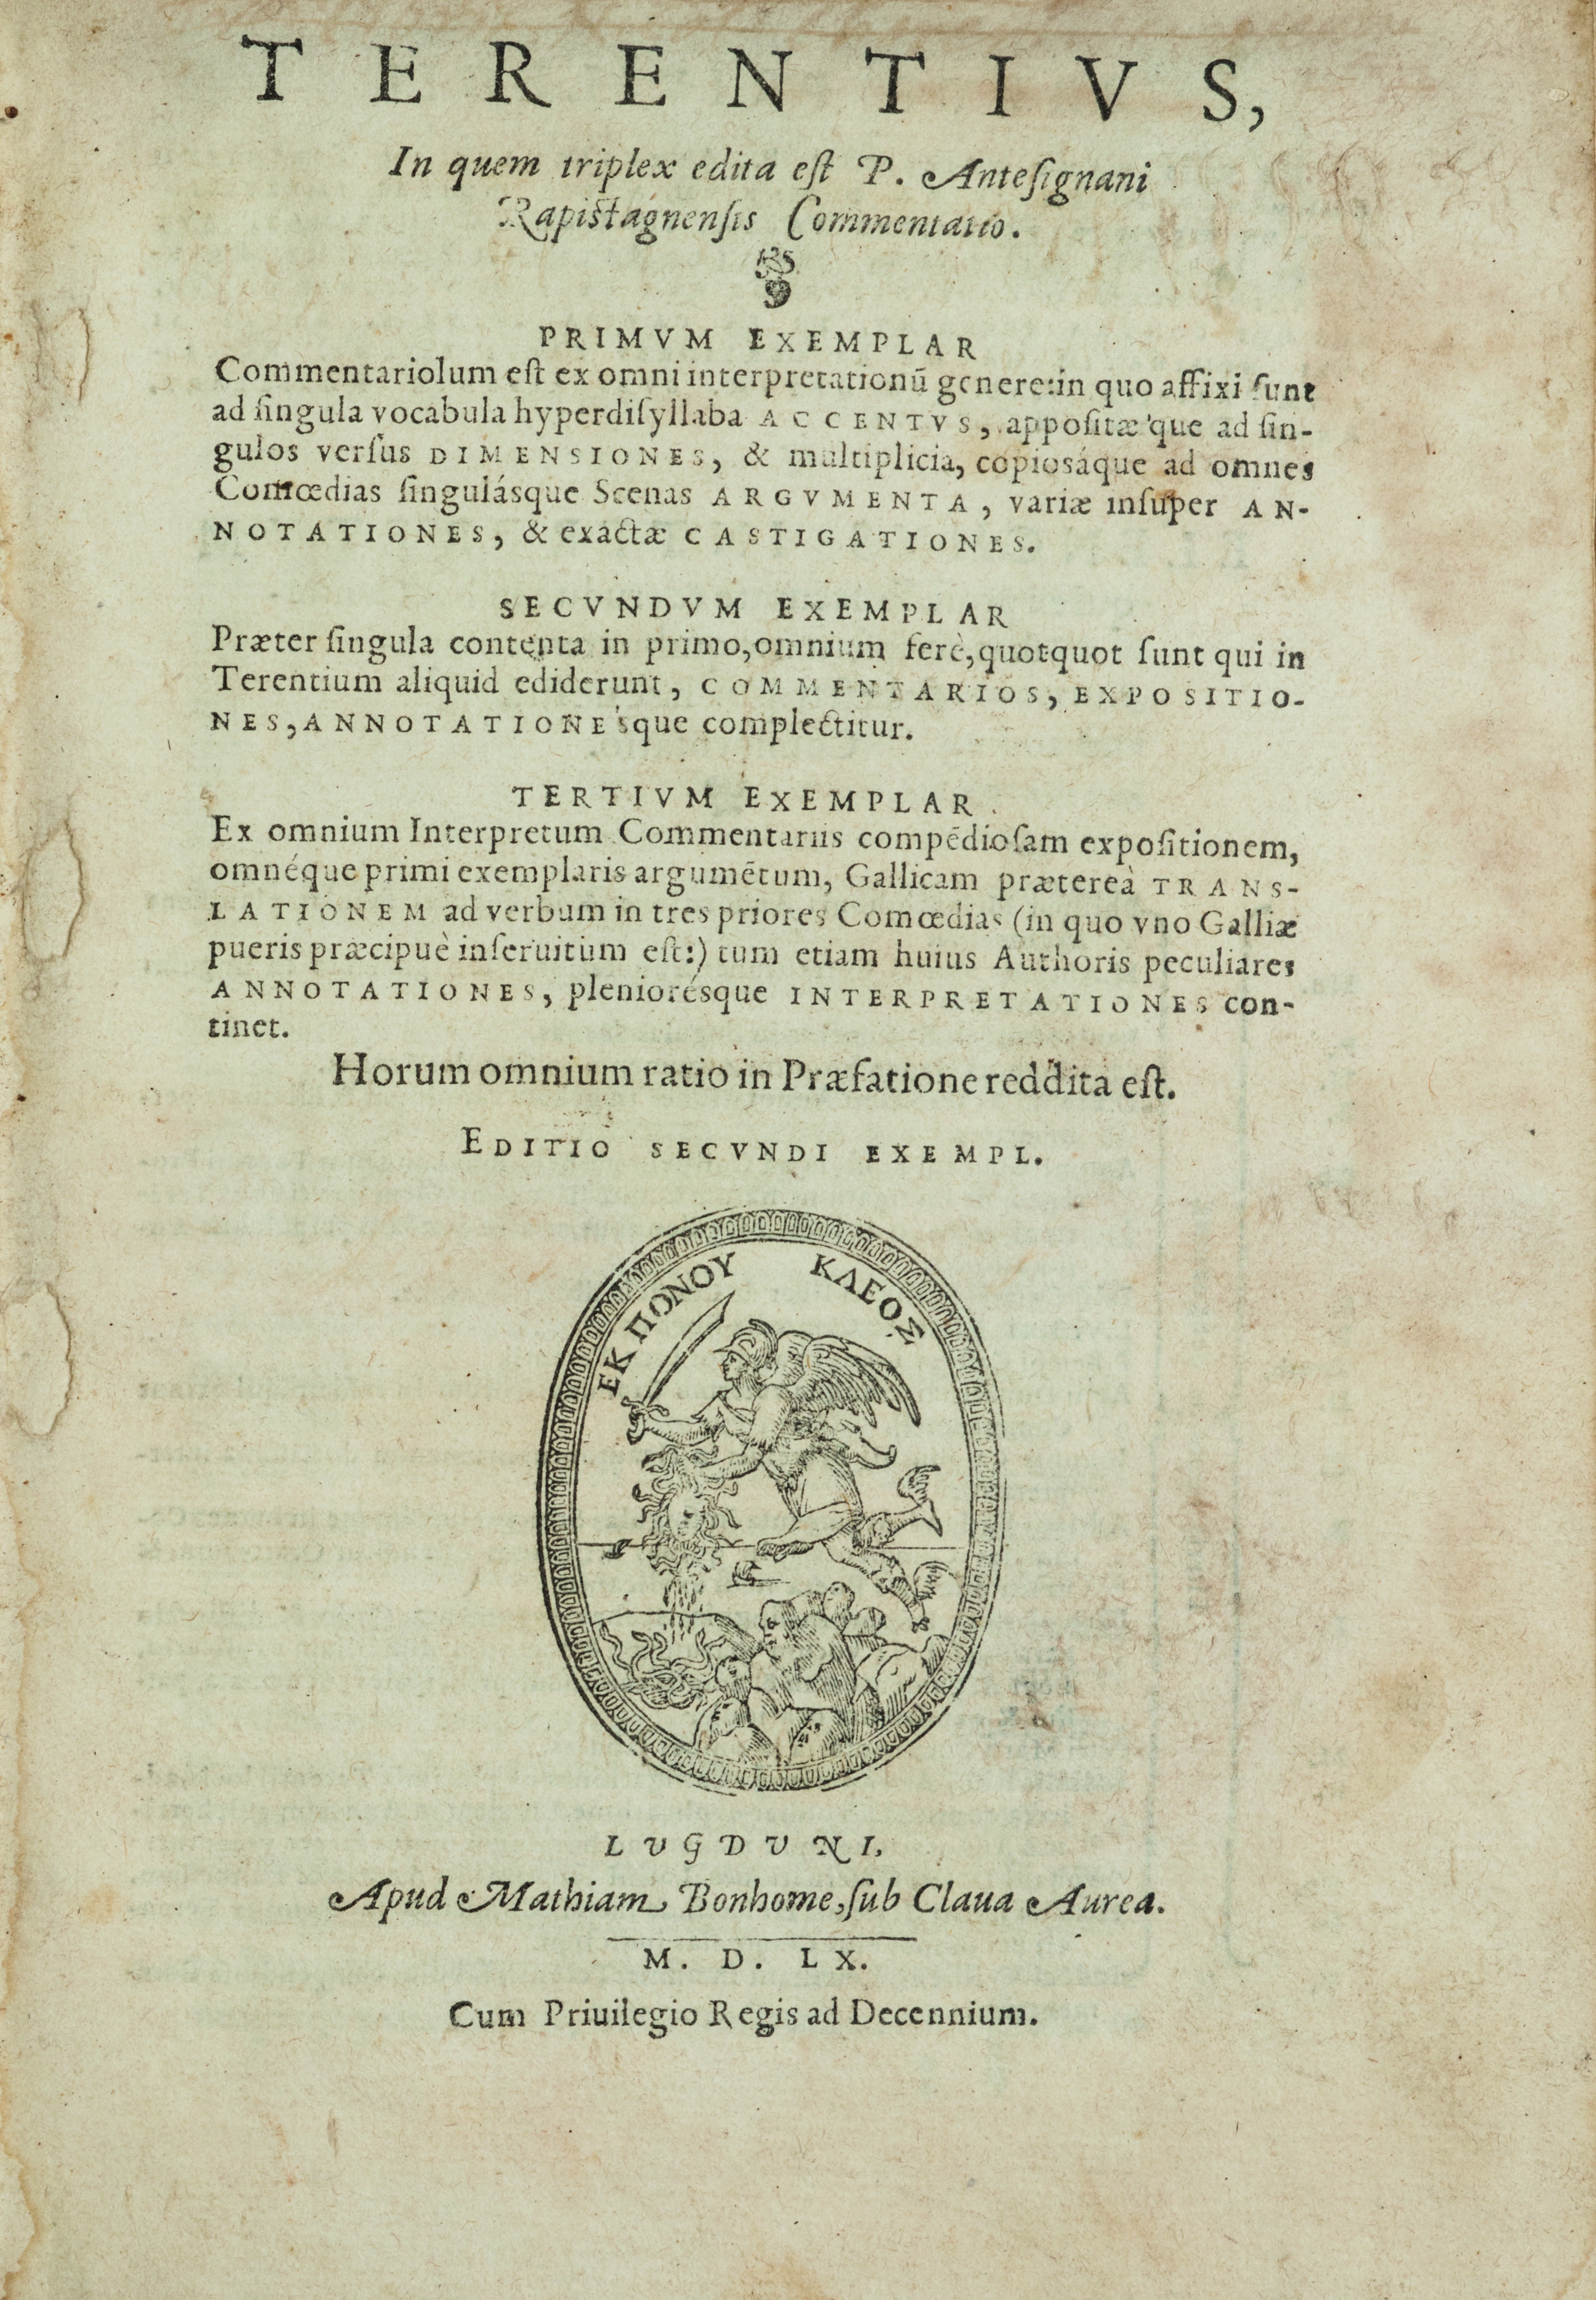 TERENTIVS,
In quem triplex edita eſt P. Anteſignani
Rapiſtagnenſis Commentatio.
PRIMVM EXEMPLAR
Commentariolum eſt ex omni interpretationũ genere: in quo affixi ſunt
ad ſingula vocabula hyperdiſyllaba ACCENTVS, appoſitæ'que ad ſin-
gulos verſus DIMENSIONES, & multiplicia, copiosáque ad omnes
Comœdias ſingulásque Scenas ARGVMENTA, variæ inſuper AN-
NOTATIONES, & exactæ CASTIGATIONES.
SECVNDVM EXEMPLAR
Præter ſingula contenta in primo, omnium ferè, quotquot ſunt qui in
Terentium aliquid ediderunt, COMMENTARIOS, EXPOSITIO-
NES, ANNOTATIONE'sque complectitur.
TERTIVM EXEMPLAR
Ex omnium Interpretum Commentariis compẽdioſam expoſitionem,
omnéque primi exemplaris argumẽtum, Gallicam prætereà TRANS-
LATIONEM ad verbum in tres priores Comœdias (in quo vno Galliæ
pueris præcipuè inſeruitum eſt:) tum etiam huius Authoris peculiares
ANNOTATIONES, pleniorésque INTERPRETATIONES con-
tinet.
Horum omnium ratio in Præfatione reddita eſt.
EDITIO SECVNDI EXEMPL.
ΕΚ ΠΟΝΟΥ ΚΛΕΟΣ
LVGDVNI,
Apud Mathiam Bonhome, ſub Claua Aurea.
M. D. LX.
Cum Priuilegio Regis ad Decennium.